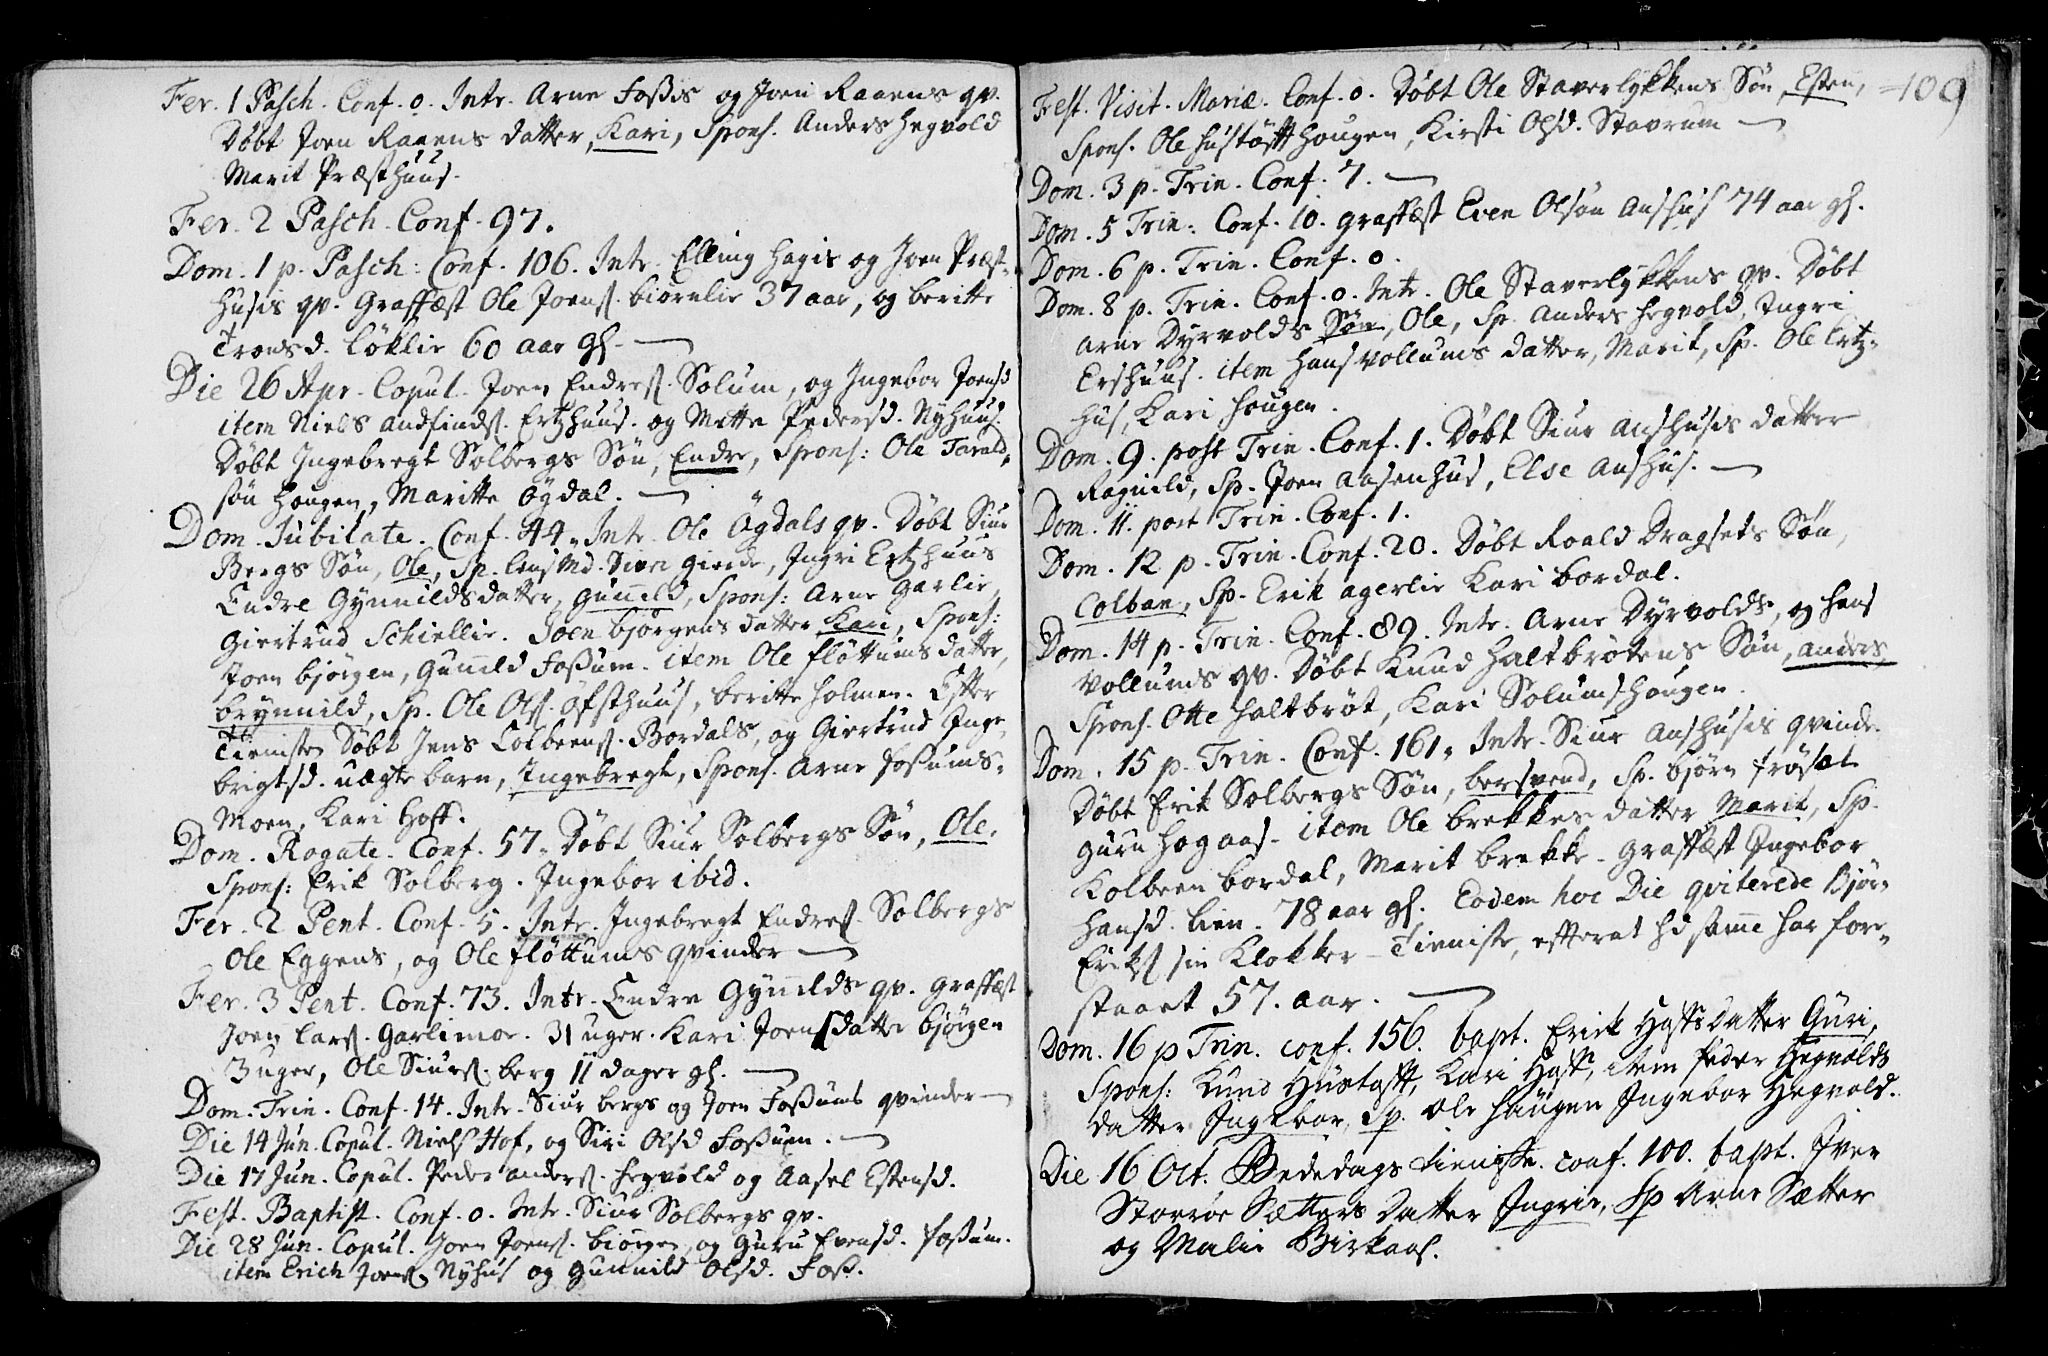 Fer. 1 Pasch. Conf. 0. Intr. Arne Foßis og Joen Raaens qv.
Døbt Joen Raaens datter, Kari, Spons. Anders Hegvold
Marit Præsthuus.
Fer. 2 Pasch. Conf. 97.
Dom. 1 p. Pasch: Conf. 106. Intr. Elling Hagis og Joen Præst-
husis qv. Graffæst Ole Joens. biørnlie 37 aar, og beritte
Tronsd. Løklie 60 aar gl.
Die 26 Apr. Copul. Joen Endres. Solum, og Ingebor Joensd
item Niels Andfinds. Ertzhuus. og Mette Pedersd. Nyhuus.
Døbt Ingebregt Solbergs Søn, Endre, Spons: Ole Tarald-
søn Hougen, Maritte Øgdal.
Dom. Jubilate. Conf. 44. Intr. Ole Øgdals qv. Døbt Siur
Bergs Søn, Ole, Sp. Lensmd. Siver Gierde, Ingri Ertzhuus
Endre Gynnilds datter, Gunnild, Spons: Arne Garlie,
Giertrud Schiellie. Joen bjørgens datter Kari, Spons:
Joen bjørgen, Gunnild Foßum. item Ole Fløttums datter,
brynnild, Sp. Ole Ols. Øfsthuus, beritte Holmen. Efter
Tienisten Døbt Jens Colbeens. Bordals, og Giertrud Inge-
brigtsd. uægte barn, Ingebregt, Spons. Arne Foßums-
Moen, Kari Hoff.
Dom. Rogate. Conf. 57. Døbt Siur Solbergs Søn, Ole.
Spons: Erik Solberg. Ingebor ibid.
Fer. 2 Pent. Conf. 5. Intr. Ingebregt Endres. Solbergs
Ole Eggens, og Ole Fløttums qvinder
Fer. 3 Pent. Conf. 73. Intr. Endre Gynnilds qv. Graffæst
Joen Lars. Garlimoe. 31 uger. Kari Joensdatter bjørgen
3 uger, Ole Siurs. berg 11 dager gl.
Dom. Trin. Conf. 14. Intr. Siur bergs og Joen Foßums qvinder
Die 14 Jun. Copul. Niels Hof, og Siri Olsd Foßum.
Die 17 Jun. Copul. Peder anders. Hegvold og Aasel Estensd.
Fest. Baptist. Conf. 0. Intr. Siur Solbergs qv.
Die 28 Jun. Copul. Joen Joens. biørgen, og Guru Evensd. Foßum.
item Erich Joens. Nyhus og Gunnild Olsd. Foß.
109
Fest. Visit. Mariæ. Conf. 0. Døbt Ole Staverlykkens Søn, Esten,
Spons. Ole Hustøfthougen, Kirsti Olsd. Stavrum
Dom. 3 p. Trin. Conf. 7.
Dom. 5 Trin: Conf. 10. Graffæst Even Olsøn Anshus 74 aar gl.
Dom. 6 p. Trin. Conf. 0.
Dom. 8 p. Trin. Conf. 0. Intr. Ole Staverlykkens qv. Døbt
Arne Dyrvolds Søn, Ole, Sp. Anders Hegvold, Ingri
Ershuus. item Hans Vollums datter, Marit, Sp. Ole Ertz-
hus, Kari Hougen.
Dom. 9. post Trin. Conf. 1. Døbt Siur Anshusis datter
Ragnild, Sp. Joen Aasenhus, Else Anshus.
Dom. 11. post Trin. Conf. 1.
Dom. 12 p. Trin. Conf. 20. Døbt Roald Dragsets Søn,
Colban, Sp. Erik Agerlie Kari bordal.
Dom. 14 p. Trin. Conf. 89. Intr. Arne Dyrvolds, og Hans
Vollums qv. Døbt Knud Haltbrøtens Søn, Anders,
Spons. Otte Haltbrøt, Kari Solumshougen.
Dom. 15 p. Trin. Conf. 161. Intr. Siur Anshusis qvinde.
Døbt Erik Solbergs Søn, bersvend, Sp. bjørn Frøset
Guru Hogaas. item Ole brekkes datter Marit, Sp.
Kolbeen bordal, Marit brekke. Graffæst Ingebor
Hansd. Lien. 78 aar gl. Eodem hoc Die qviterede Bjør-
Eriks. sin Klokker-Tieniste, efterat hd samme har fore-
staaet 57. aar.
Dom. 16 p Trin. conf. 156. bapt. Erick Hofs datter Guri,
Spons: Knud Hustoft, Kari Hoff, item Peder Hegvolds
datter Ingebor, Sp. Ole Haugen Ingebor Hegvold.
Die 16 Oct. Bededags tieniste. conf. 100. bapt. Iver
Storrøe Sætters datter Ingrie, Sp Arne Sætter
og Malie Birkaas.